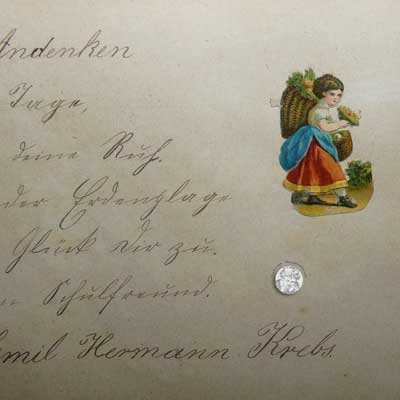 Andenken
Tage,
deine Ruh.
der Erdenplage
Glück dir zu.
Schulfreund.
Emil Hermann Krebs.